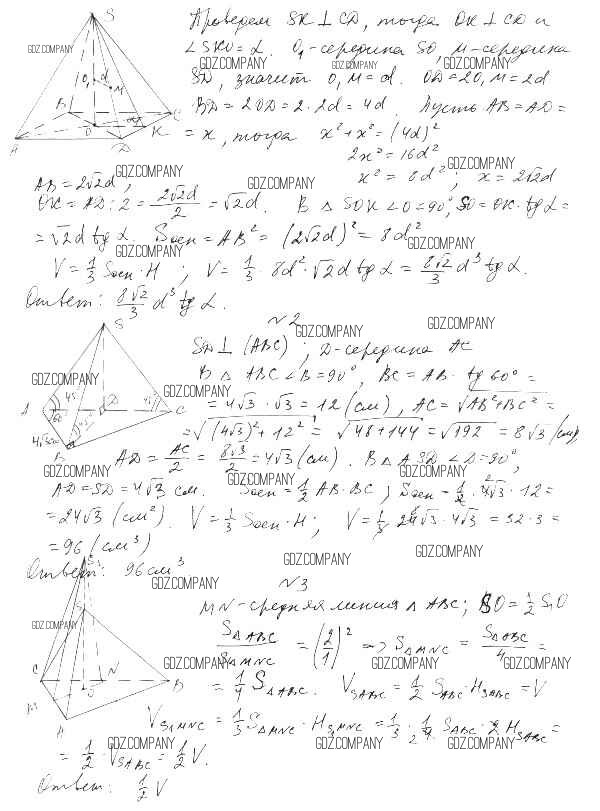 Проведем SK ⊥ CD, тогда OK ⊥ CD и
∠SKO = α. O₁ - середина SO, M - середина
SD, значит O₁M = d. OD = 2O₁M = 2d
BD = 2OD = 2·2d = 4d. Пусть AB = AD =
= x, тогда x² + x² = (4d)²
2x² = 16d²
x² = 8d²; x = 2√2d
AB = 2√2d,
OK = AD : 2 = 2√2d/2 = √2d. В △ SOK ∠O = 90°, SO = OK · tg α =
= √2d tg α. Sосн = AB² = (2√2d)² = 8d²
V = 1/3 Sосн · H ; V = 1/3 · 8d² · √2d tg α = 8√2/3 d³ tg α.
Ответ: 8√2/3 d³ tg α.
№2
SD ⊥ (ABC) ; D - середина AC
В △ ABC ∠B = 90°, BC = AB · tg 60° =
= 4√3 · √3 = 12 (см), AC = √AB² + BC² =
= √(4√3)² + 12² = √48 + 144 = √192 = 8√3 (см)
AD = AC/2 = 8√3/2 = 4√3 (см). В △ ASD ∠D = 90°,
AD = SD = 4√3 см. Sосн = 1/2 AB · BC ; Sосн = 1/2 · 4√3 · 12 =
= 24√3 (см²). V = 1/3 Sосн · H ; V = 1/3 24√3 · 4√3 = 32 · 3 =
= 96 (см³)
Ответ: 96 см³
№3
MN - средняя линия △ ABC; SO = 1/2 S₁O
S△ABC/S△MNC = (2/1)² => S△MNC = S△ABC/4 =
= 1/4 S△ABC. VSABC = 1/2 SABC · HSABC = V
VS₁MNC = 1/3 S△MNC · HS₁MNC = 1/3 · 1/4 SABC · 2 HSABC =
= 1/2 · VSABC = 1/2 V.
Ответ: 1/2 V
GDZ.COMPANY